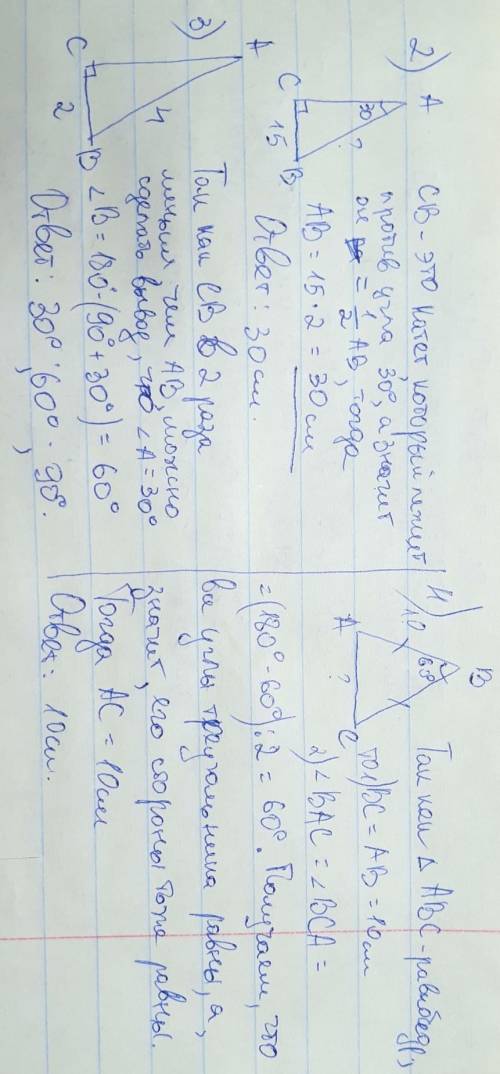 2) A
30°
?
C 15 B
CB - это катет, который лежит
против угла 30°, а значит
он = 1/2 AB, тогда
AB = 15 · 2 = 30 см
Ответ: 30 см.
3) A
4
C 2 B
Так как CB в 2 раза
меньше чем AB, можно
сделать вывод, что ∠A = 30°
∠B = 180° - (90° + 30°) = 60°
Ответ: 30°; 60°; 90°.
4) B
10 60°
A ? C
Так как △ ABC - равнобедр,
то 1) BC = AB = 10 см
2) ∠BAC = ∠BCA =
= (180° - 60°) : 2 = 60°. Получаем, что
все углы треугольника равны, а,
значит, его стороны тоже равны.
Тогда AC = 10 см
Ответ: 10 см.